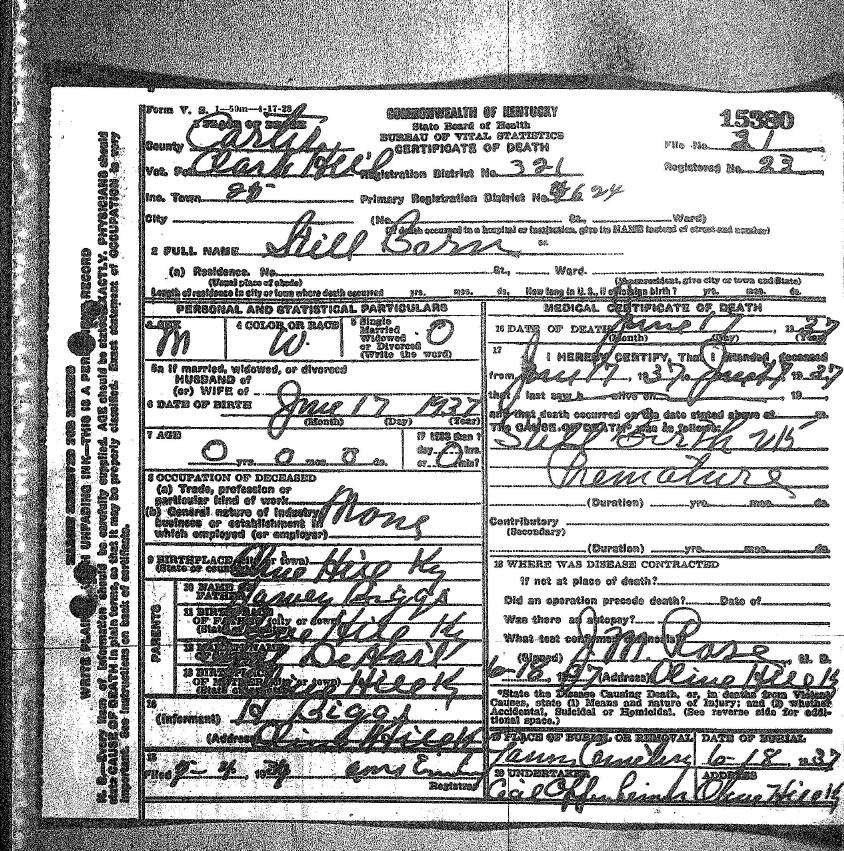 Form V. S. 1—50m—4-17-28
COMMONWEALTH OF KENTUCKY
State Board of Health
BUREAU OF VITAL STATISTICS
CERTIFICATE OF DEATH
15380
File No. 21
Registered No. 23
1 PLACE OF DEATH
County Carter
Vot. Pct. Clark Hill Registration District No. 321
Inc. Town 25 Primary Registration District No. 4624
City (No. St., Ward)
(If death occurred in a hospital or institution, give its NAME instead of street and number)
2 FULL NAME Still Born
(a) Residence. No. St., Ward.
(Usual place of abode) (If nonresident, give city or town and State)
Length of residence in city or town where death occurred yrs. mos. ds. How long in U. S., if of foreign birth? yrs. mos. ds.
PERSONAL AND STATISTICAL PARTICULARS
3 SEX M
4 COLOR OR RACE W
5 Single Married Widowed or Divorced (Write the word) O
5a If married, widowed, or divorced
HUSBAND of
(or) WIFE of
6 DATE OF BIRTH June 17 1937
(Month) (Day) (Year)
7 AGE 0 yrs. 0 mos. 0 ds.
If LESS than 1 day hrs. or 0 min?
8 OCCUPATION OF DECEASED
(a) Trade, profession or
particular kind of work
(b) General nature of industry
business or establishment in
which employed (or employer) None
9 BIRTHPLACE (city or town) Olive Hill Ky
(State or country)
10 NAME OF FATHER Harvey Biggs
11 BIRTHPLACE OF FATHER (city or town) Olive Hill Ky
12 MAIDEN NAME
13 BIRTHPLACE OF MOTHER (city or town) Olive Hill Ky
PARENTS
14
(Informant) H Biggs
(Address) Olive Hill Ky
15
Filed
Registrar
MEDICAL CERTIFICATE OF DEATH
16 DATE OF DEATH June 17 1937
(Month) (Day) (Year)
17
I HEREBY CERTIFY, That I attended deceased
from June 17, 1937, to June 17, 1937
that I last saw h alive on 19
and that death occurred on the date stated above at m.
The CAUSE OF DEATH* was as follows:
Still Birth
Premature
(Duration) yrs. mos. ds.
Contributory
(Secondary)
(Duration) yrs. mos. ds.
18 WHERE WAS DISEASE CONTRACTED
If not at place of death?
Did an operation precede death? Date of
Was there an autopsy?
What test confirmed diagnosis?
(Signed) J M Rose, M. D.
6-18, 1937 (Address) Olive Hill Ky
*State the Disease Causing Death, or, in deaths from Violent
Causes, state (1) Means and nature of Injury; and (2) whether
Accidental, Suicidal or Homicidal. (See reverse side for addi-
tional space.)
19 PLACE OF BURIAL OR REMOVAL Cemetery
DATE OF BURIAL 6-18, 1937
20 UNDERTAKER Cecil
ADDRESS Olive Hill Ky
MARGIN RESERVED FOR BINDING
WRITE PLAINLY WITH UNFADING INK—THIS IS A PERMANENT RECORD
N. B.—Every item of information should be carefully supplied. AGE should be stated EXACTLY. PHYSICIANS should
state CAUSE OF DEATH in plain terms, so that it may be properly classified. Exact statement of OCCUPATION is very
important. See instructions on back of certificate.